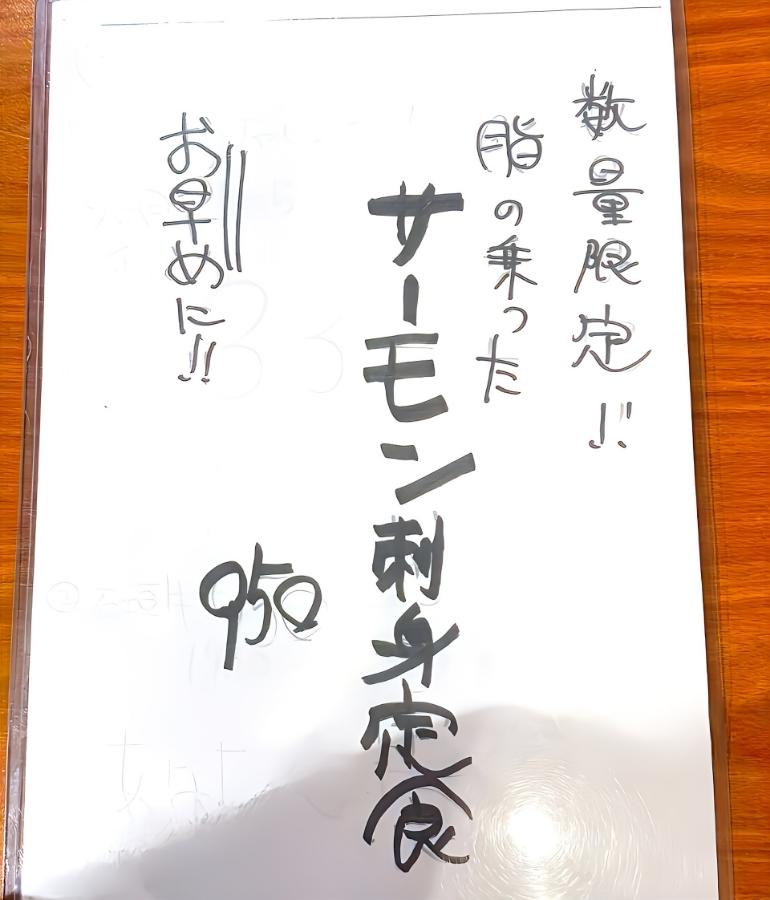 数量限定!!
脂の乗った
サーモン刺身定食
950
お早めに!!